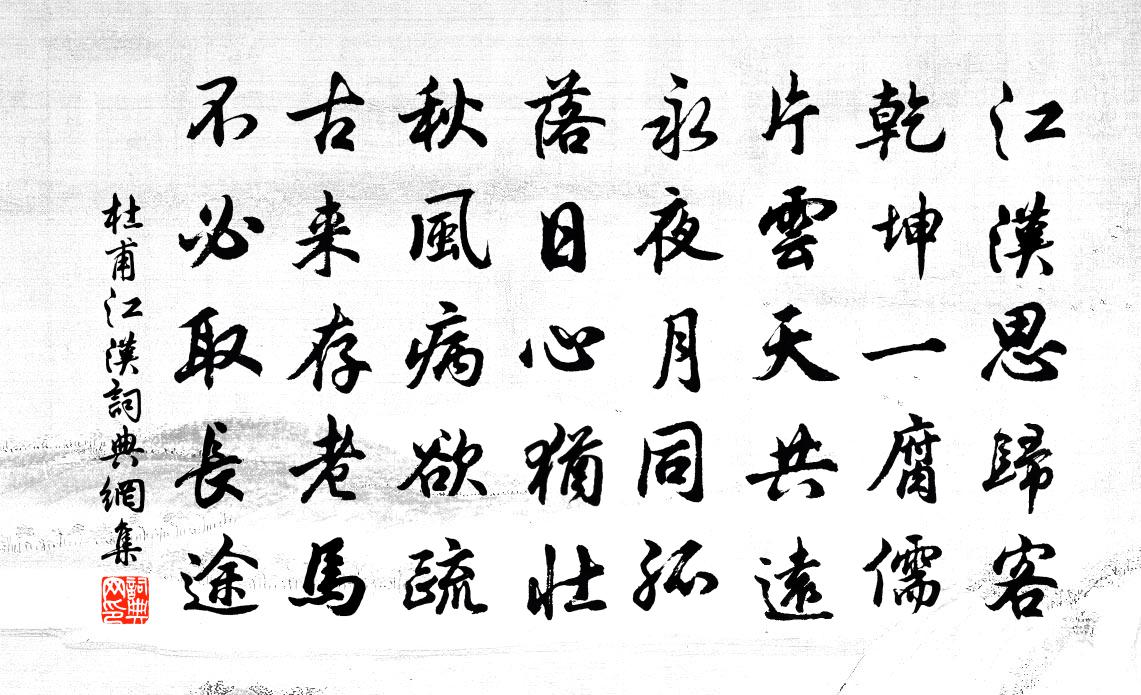 江漢思歸客
乾坤一腐儒
片雲天共遠
永夜月同孤
落日心猶壯
秋風病欲疏
古来存老馬
不必取長途
杜甫江漢詞典網集
詞典
网印